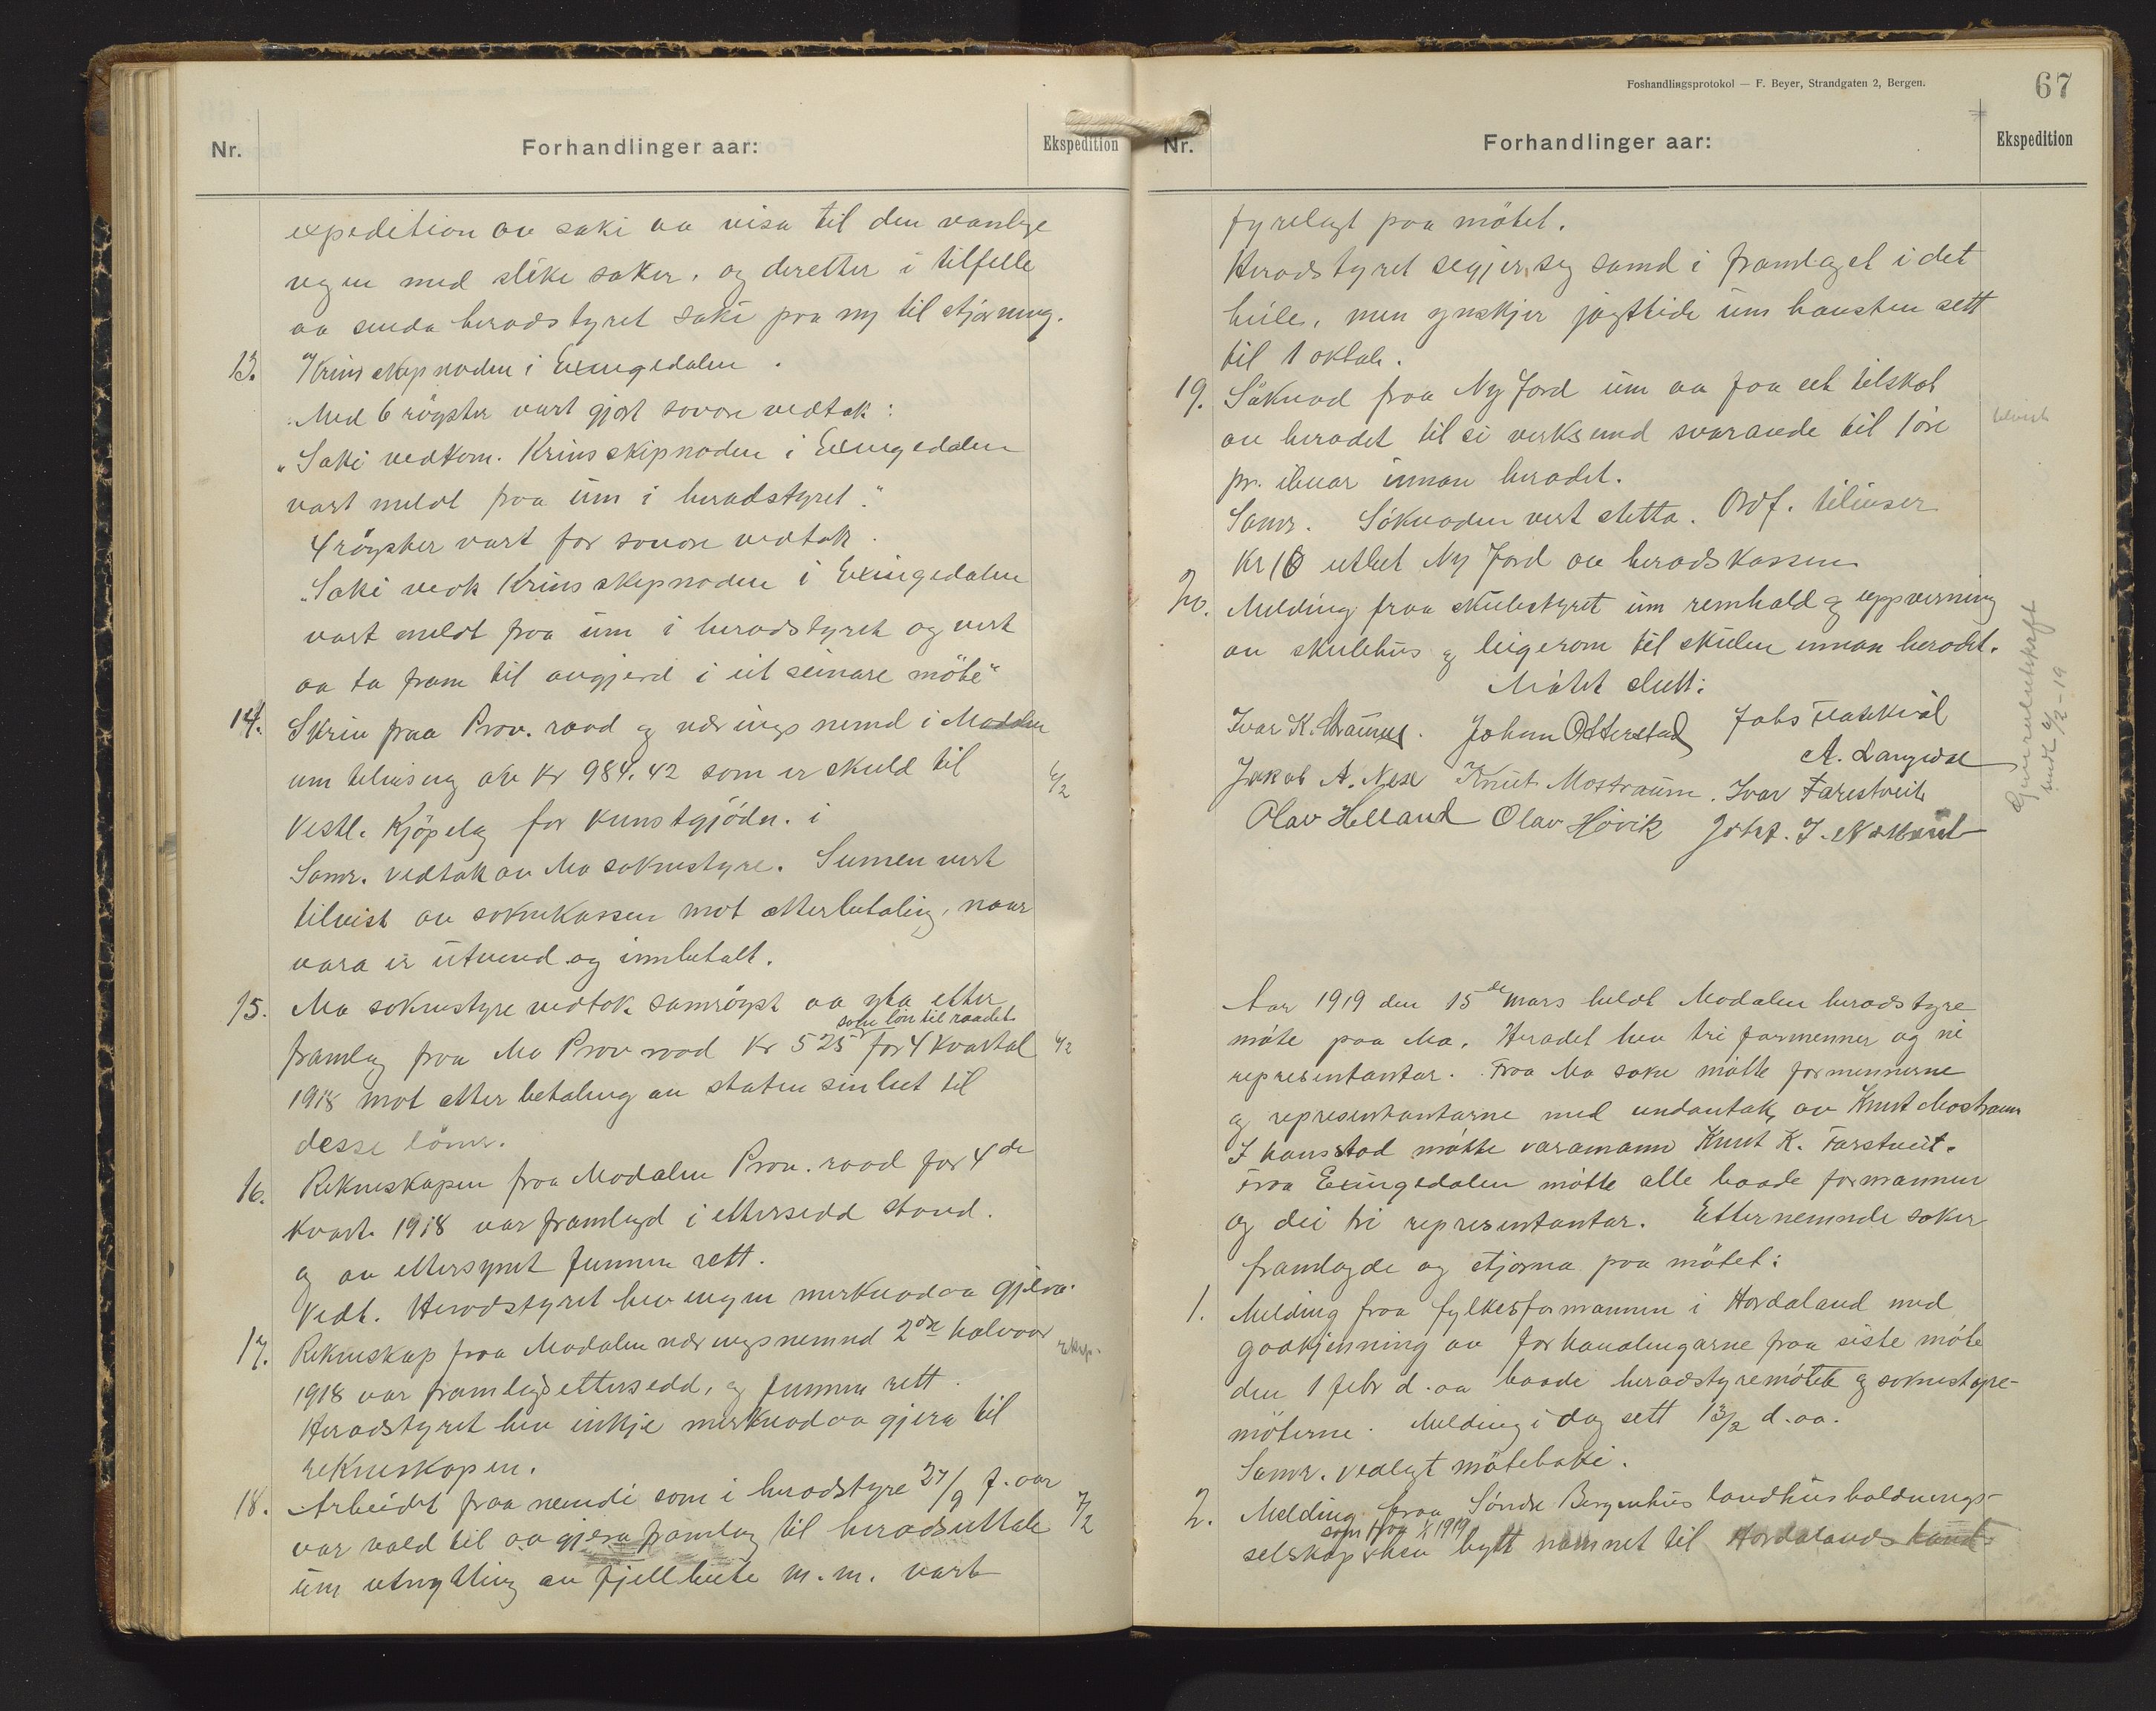 Nr.
Forhandlinger aar:
Ekspedition
expedition av saki aa visa til den vanlege
vegen med slike saker, og deretter i tilfelle
aa senda heradstyret saki paa ny til stjorning.
13. Krinsskipnaden i Exingedalen.
Med 6 røyster vart gjort sovore vedtak:
"Saki vedkom. Krinsskipnaden i Exingedalen
vart meldt fraa um i heradstyret."
4 røyster vart for sovore vedtak.
"Saki vedk Krinsskipnaden i Exingedalen
vart meldt fraa um i heradstyret og vert
aa ta fram til avgjerd i eit seinare møte"
14. Skriv fraa Prov. raad og næringsnemd i Modalen
um tilvising av kr 984.42 som er skuld til
6/2
Vestl. Kjøpelag for kunstgjødn. i
Samr. vedtak av Mo soknestyre. Sumen vert
tilvist av soknekassen mot atterbetaling, naar
vara er utvend og innbetalt.
15. Mo soknestyre vedtok samrøyst aa yta etter
som løn til raadet
framlag fraa Mo Prov raad kr 525 for 4 kvartal
6/2
1918 mot atterbetaling av staten sin lut til
desse lønn.
16. Rekneskapen fraa Modalen Prov. raad for 4de
kvart. 1918 var framlagd i ettersedd stand.
og av ettersynet funnen rett.
Vedt. Heradstyret hev ingen merknad aa gjeva.
17. Rekneskap fraa Modalen næringsnemnd 2dre halvaar
Eksp.
1918 var framlagd ettersedd, og funnen rett.
Heradstyret hev inkje merknad aa gjera til
rekneskapen.
18. Arbeidet fraa nemdi som i heradstyre 27/9 f. aar
7/2
var vald til aa gjera framlag til heradsuttale
um utnytting av fjellbeite m.m. vart
Foshandlingsprotokol — F. Beyer, Strandgaten 2, Bergen.
67
Nr.
Forhandlinger aar:
Ekspedition
fyrelagt paa møtet.
Heradstyret segjer seg samd i framlaget i det
heile, men ynskjer jagttidi um hausten sett
til 1 oktob.
19. Søknad fraa Ny Jord um aa faa eit tilskot
av heradet til si verksemd svarande til 1 øre
pr. ibuar innan heradet.
Samr. Søknaden vert stetta. Ordf. tilviser
Kr 10 utbet Ny Jord av heradskassen
20. Melding fraa skulestyret um reinhald og uppvarming
av skulehus og leigerom til skulen innan heradet.
Møtet slutt:
Ivar K. Straume. Johan Otterstad Jobs Flatekvål
A. Langedal
Jakob A. Nese Knut Mostraum. Ivar Farestveit
Olav Helland Olav Høvik Johs. J.
Generalutskrift
sendt 6/2-19
Aar 1919 den 15de mars heldt Modalen heradstyre
møte paa Mo. Heradet hev tri formenner og ni
representantar. Fraa Mo sokn møtte formennerne
og representantarne med undantak av Knut Mostraum
I hans stad møtte varamann Knut K. Farstveit.
Fraa Exingedalen møtte alle baade formannen
og dei tri representantar. Etternemnde saker
framlagde og stjorna paa møtet:
1. Melding fraa fylkesformannen i Hordaland med
godkjenning av forhandlingarne fraa siste møte
den 1 febr d. aa baade heradstyremøtet og soknestyre-
møterne. Melding i dag sett 13/2 d. aa.
Samr. vedlegt møteboki.
2. Melding fraa Søndre Bergenhus landhusholdnings-
som fraa 1/1 1919
selskap hev bytt namnet til Hordalands land-